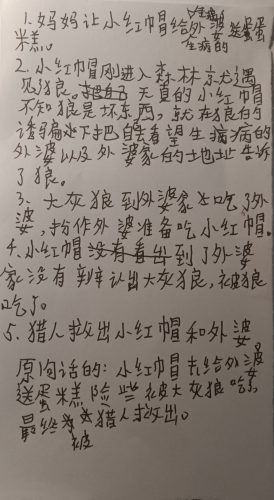 1.妈妈让小红帽给外婆生病的送蛋
糕。
2.小红帽刚进入森林就遇
见了狼。天真的小红帽
不知狼是坏东西,就在狼的
诱骗下把自己看望生病的
外婆以及外婆家的地址告诉
了狼。
3.大灰狼到外婆家吃了外
婆,扮作外婆准备吃小红帽。
4.小红帽到了外婆
家没有辩认出大灰狼,被狼
吃了。
5.猎人救出小红帽和外婆
原因话的:小红帽去给外婆
送蛋糕险些被大灰狼吃
最终被猎人救出。